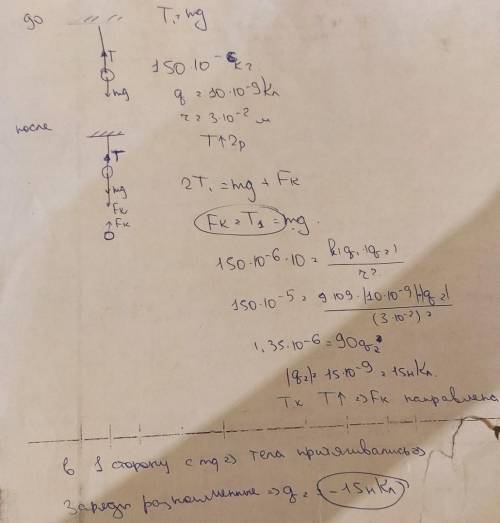 до
T₁ = mg
T
mg
150·10⁻⁶ кг
q = 10·10⁻⁹ Кл
r = 3·10⁻² м
T↑2р
после
T
mg
Fк
Fк
2T₁ = mg + Fк
Fк = T₁ = mg.
150·10⁻⁶·10 = k|q₁||q₂| / r²
150·10⁻⁵ = 9·10⁹·|10·10⁻⁹||q₂| / (3·10⁻²)²
1,35·10⁻⁶ = 90q₂
|q₂| = 15·10⁻⁹ = 15нКл.
Тк T↑ => Fк направлена
в 1 сторону с mg => тела притягивались =>
Заряды разноименные => q₂ = -15нКл